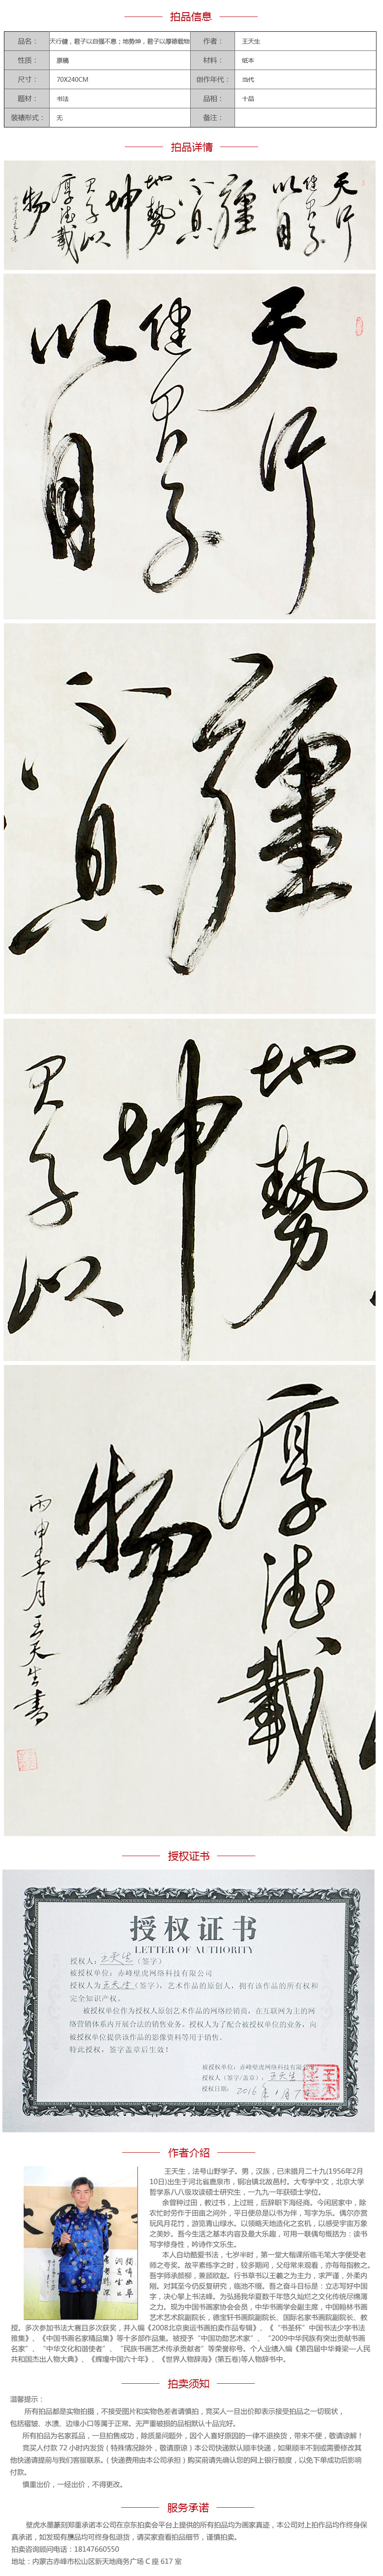 拍品信息
品名： 天行健，君子以自强不息；地势坤，君子以厚德载物 作者： 王天生
性质： 原稿 材料： 纸本
尺寸： 70X240CM 创作年代： 当代
题材： 书法 品相： 十品
装裱形式： 无 备注：
拍品详情
天行
健君子
以自
彊
不息
地势
坤
君子以
厚德载
物
天行
健君子
以自
彊
不息
地势
坤
君子以
厚德载
物
丙申春月王天生书
授权证书
授权证书
LETTER OF AUTHORITY
授权人：王天生（签字）
被授权单位：赤峰壁虎网络科技有限公司
授权人为王天生（签字），艺术作品的原创人，拥有该作品的所有权和
完全知识产权。
被授权单位作为授权人原创艺术作品的网络经销商，在互联网为主的网
络营销体系内开展合法的销售业务。授权人为了配合被授权单位的业务，向
被授权单位提供该作品的影像资料等用于销售。
特此授权，签字盖章后生效！
被授权单位：赤峰壁虎网络科技有限公司
授权人（签字/盖章）：王天生
授权日期：2016年1月7
作者介绍
王天生，法号山野学子。男，汉族，已未腊月二十九(1956年2月
10日)出生于河北省鹿泉市，铜冶镇北故邑村。大专学中文，北京大学
哲学系八八级攻读硕士研究生，一九九一年获硕士学位。
余曾种过田，教过书，上过班，后辞职下海经商。今闲居家中，除
农忙时劳作于田亩之间外，平日便总是以书为伴，写字为乐。偶尔亦赏
玩风月花竹，游览青山绿水。以领略天地造化之玄机，以感受宇宙万象
之美妙。吾今生活之基本内容及最大乐趣，可用一联偶句概括为：读书
写字修身性，吟诗作文乐生。
本人自幼酷爱书法，七岁半时，第一堂大楷课所临毛笔大字便受老
师之夸奖。故平素练字之时，较多期间，父母常来观看，亦每每指教之。
吾字师承颜柳，兼兹欧赵。行书草书以王羲之为主力，求严谨，外柔内
刚。对其至今仍反复研究，临池不辍。吾之奋斗目标是：立志写好中国
字，决心攀上书法峰。为弘扬我华夏数千年悠久灿烂之文化传统尽绵薄
之力。现为中国书画家协会会员，中华书画学会副主席，中国翰林书画
艺术艺术院副院长，德宝轩书画院副院长、国际名家书画院副院长、教
授。多次参加书法大赛且多次获奖，并人编《2008北京奥运书画拍卖作品专辑》、《“书圣杯”中国书法少字书法
雅集》、《中国书画名家精品集》等十多部作品集。被授予“中国功勋艺术家”、“2009中华民族有突出贡献书画
名家”、“中华文化和谐使者”、“民族书画艺术传承贡献者”等荣誉称号。个人业绩入编《第四届中华脊梁—人民
共和国杰出人物大典》、《辉煌中国六十年》、《世界人物辞海》(第五卷)等人物辞书中。
拍卖须知
温馨提示：
所有拍品都是实物拍摄，不接受图片和实物色差者请慎拍，竞买人一旦出价即表示接受拍品之一切现状，
包括褶皱、水渍、边缘小口等属于正常。无严重破损的品相默认十品完好。
所有拍品为名家孤品，一旦拍售成功，除质量问题外，因个人喜好原因的一律不退换货，带来不便，敬请谅解！
竞买人付款 72 小时内发货（特殊情况除外，敬请原谅）本公司快递默认顺丰快递，如果顺丰不到或需要修改其
他快递请提前与我们客服联系。（快递费用由本公司承担）购买前请先确认您的网上银行额度，以免下单成功后影响
付款。
慎重出价，一经出价，不得更改。
服务承诺
壁虎水墨篆刻郑重承诺本公司在京东拍卖会平台上提供的所有拍品均为画家真迹，本公司对上拍作品均作终身保
真承诺，如发现有赝品均可终身包退货，请买家查看拍品细节，谨慎拍卖。
拍卖咨询顾问电话：18147660550
地址：内蒙古赤峰市松山区新天地商务广场 C 座 617 室